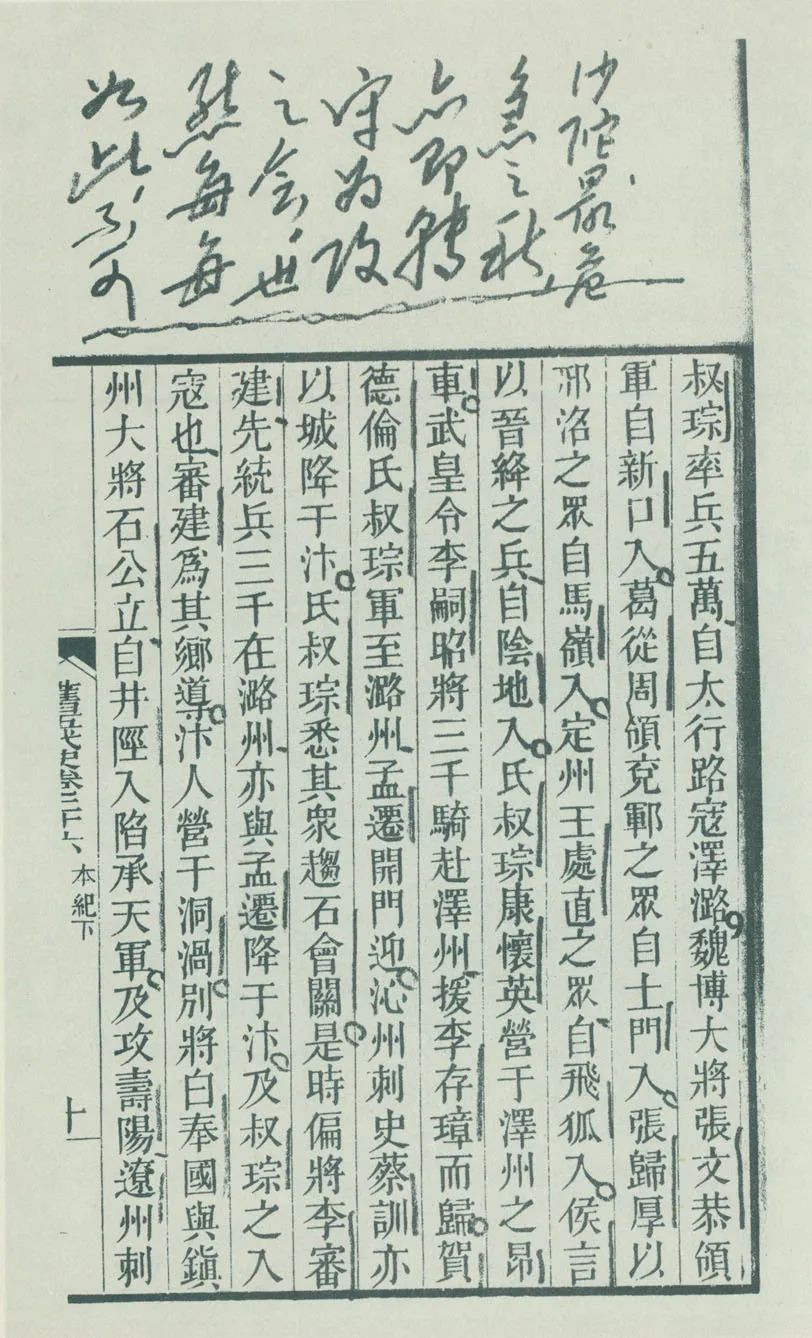 沙陀最危
急之秋
亦即轉
守为攻
之会,世
態每每
如此,不可
叔琮率兵五萬自太行路寇澤潞魏博大將張文恭領
軍自新口入葛從周領兗鄆之眾自土門入張歸厚以
邢洺之眾自馬嶺入定州王處直之眾自飛狐入侯言
以晉絳之兵自陰地入氏叔琮康懷英營于澤州之昂
車武皇令李嗣昭將三千騎赴澤州援李存璋而歸賀
德倫氏叔琮軍至潞州孟遷開門迎沁州刺史蔡訓亦
以城降于汴氏叔琮悉其衆趨石會關是時偏將李審
建先統兵三千在潞州亦與孟遷降于汴及叔琮之入
寇也審建爲其鄉導汴人營于洞渦別將白奉國與鎮
州大將石公立自井陘入陷承天軍及攻壽陽遼州刺
舊五代史卷二十六 本紀下 十